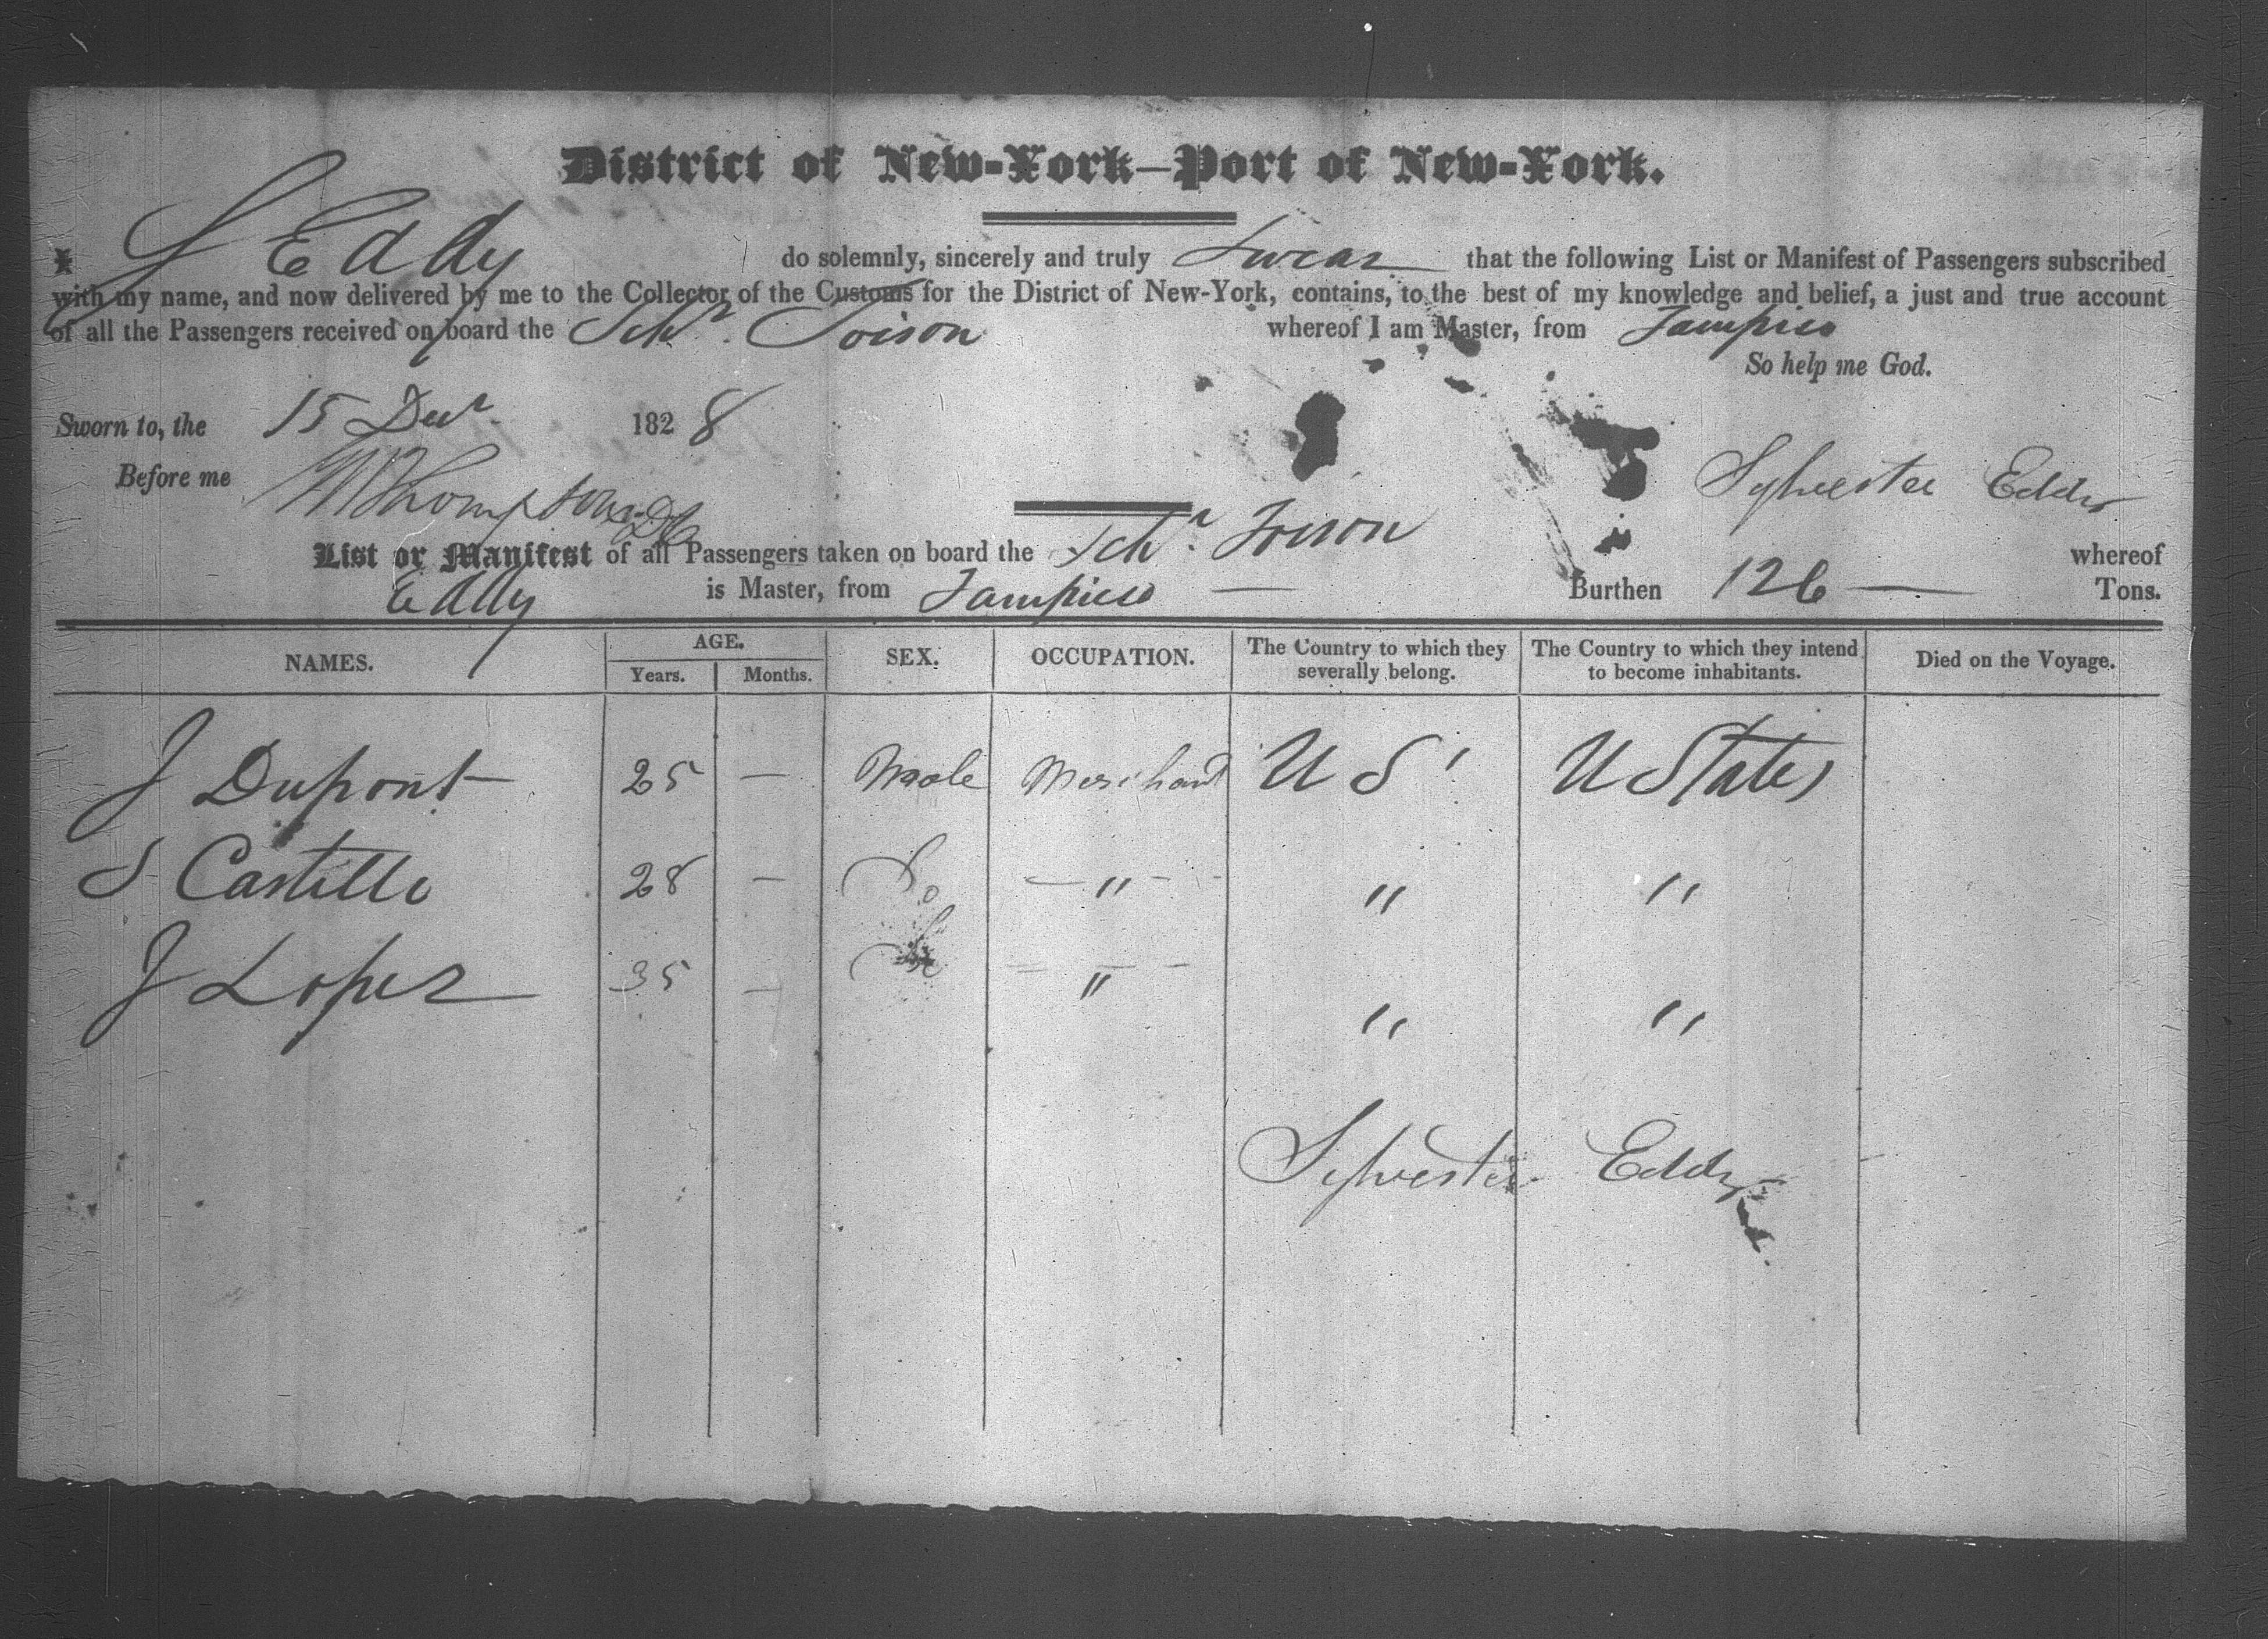 District of New-York—Port of New-York.
I S Eddy do solemnly, sincerely and truly Swear that the following List or Manifest of Passengers subscribed
with my name, and now delivered by me to the Collector of the Customs for the District of New-York, contains, to the best of my knowledge and belief, a just and true account
of all the Passengers received on board the Schr. Toison whereof I am Master, from Tampico
So help me God.
Sworn to, the 15 Decr. 1828
Before me Thompson Sylvester Eddy
List or Manifest of all Passengers taken on board the Schr. Toison whereof
Eddy is Master, from Tampico — Burthen 126 — Tons.
NAMES. AGE. Years. Months. SEX. OCCUPATION. The Country to which they severally belong. The Country to which they intend to become inhabitants. Died on the Voyage.
J Dupont 25 — Male Merchant U S U States
S Castillo 28 — Do — " — " "
J Lopez 35 — Do — " — " "
Sylvester Eddy